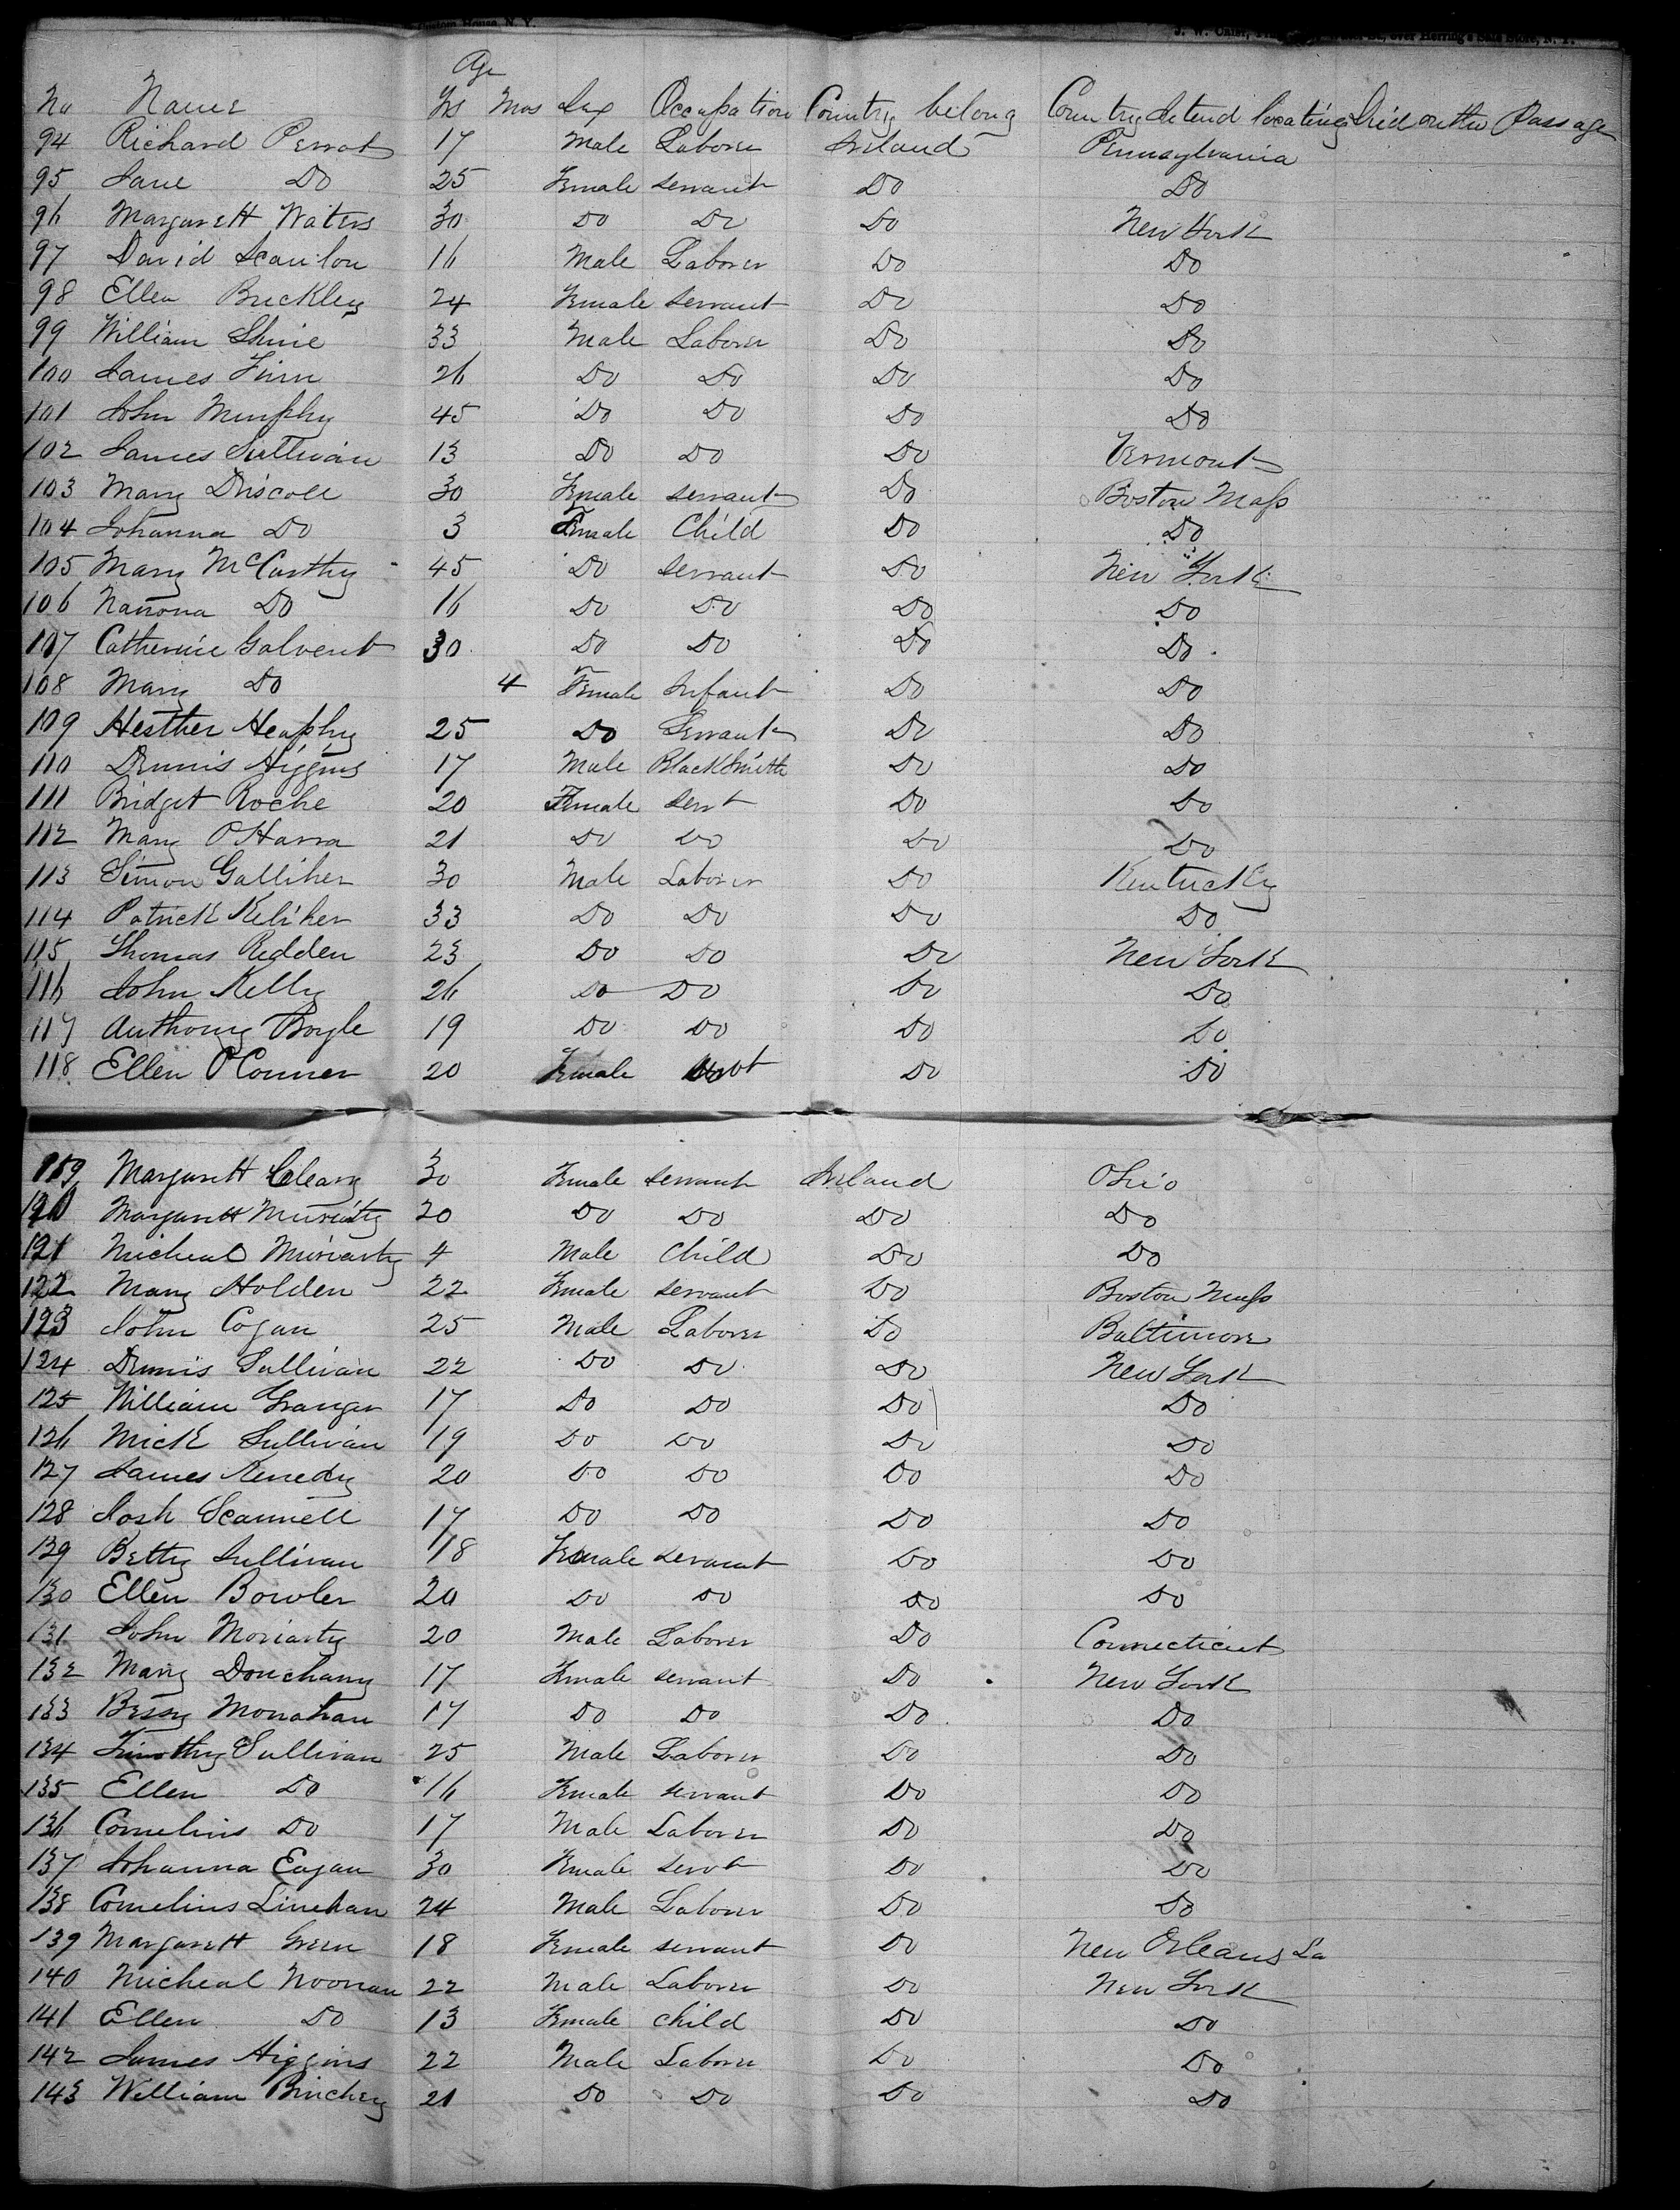 Custom House, N. Y.
over Herring's Safe Store, N. Y.
Age
No Name Yrs Mos Sex Occupation Country belong Country Intend locating Died on the Passage
94 Richard Perrot 17 Male Laborer Ireland Pennsylvania
95 Jane Do 25 Female servant Do Do
96 Margarett Waters 30 Do Do Do New York
97 David Scanlon 16 Male Laborer Do Do
98 Ellen Buckley 24 Female servant Do Do
99 William Shine 33 Male Laborer Do Do
100 James Finn 26 Do Do Do Do
101 John Murphy 45 Do Do Do Do
102 James Sullivan 13 Do Do Do Vermont
103 Mary Driscoll 30 Female servant Do Boston Mass
104 Johanna Do 3 Female Child Do Do
105 Mary McCarthy 45 Do servant Do New York
106 Nanona Do 16 Do Do Do Do
107 Catherine Galvent 30 Do Do Do Do
108 Mary Do 4 Female Infant Do Do
109 Hesther Heaphy 25 Do Servant Do Do
110 Dennis Higgins 17 Male BlackSmith Do Do
111 Bridget Roche 20 Female servt Do Do
112 Mary OHarra 21 Do Do Do Do
113 Simon Galliher 30 Male Laborer Do Kentucky
114 Patrick Keliher 33 Do Do Do Do
115 Thomas Redden 23 Do Do Do New York
116 John Kelly 26 Do Do Do Do
117 Anthony Boyle 19 Do Do Do Do
118 Ellen OConner 20 Female Do Do
119 Margarett Cleary 30 Female servant Ireland Ohio
120 Margarett 20 Do Do Do Do
121 Micheal Muriarty 4 Male Child Do Do
122 Mary Holden 22 Female servant Do Boston Mass
123 John Cogan 25 Male Laborer Do Baltimore
124 Dennis Sullivan 22 Do Do Do New York
125 William Granger 17 Do Do Do Do
126 Mick Sullivan 19 Do Do Do Do
127 James Kenedy 20 Do Do Do Do
128 Josh Scannell 17 Do Do Do Do
129 Betty Sullivan 18 Female servant Do Do
130 Ellen Bowler 20 Do Do Do Do
131 John Moriarty 20 Male Laborer Do Connecticut
132 Mary Donchany 17 Female servant Do New York
133 Bessy Monahan 17 Do Do Do Do
134 Timothy Sullivan 25 Male Laborer Do Do
135 Ellen Do 16 Female servant Do Do
136 Cornelius Do 17 Male Laborer Do Do
137 Johanna Eagan 30 Female servt Do Do
138 Cornelius Linehan 24 Male Laborer Do Do
139 Margarett Green 18 Female servant Do New Orleans La
140 Micheal Noonan 22 Male Laborer Do New York
141 Ellen Do 13 Female child Do Do
142 James Higgins 22 Male Laborer Do Do
143 William Binchey 21 Do Do Do Do